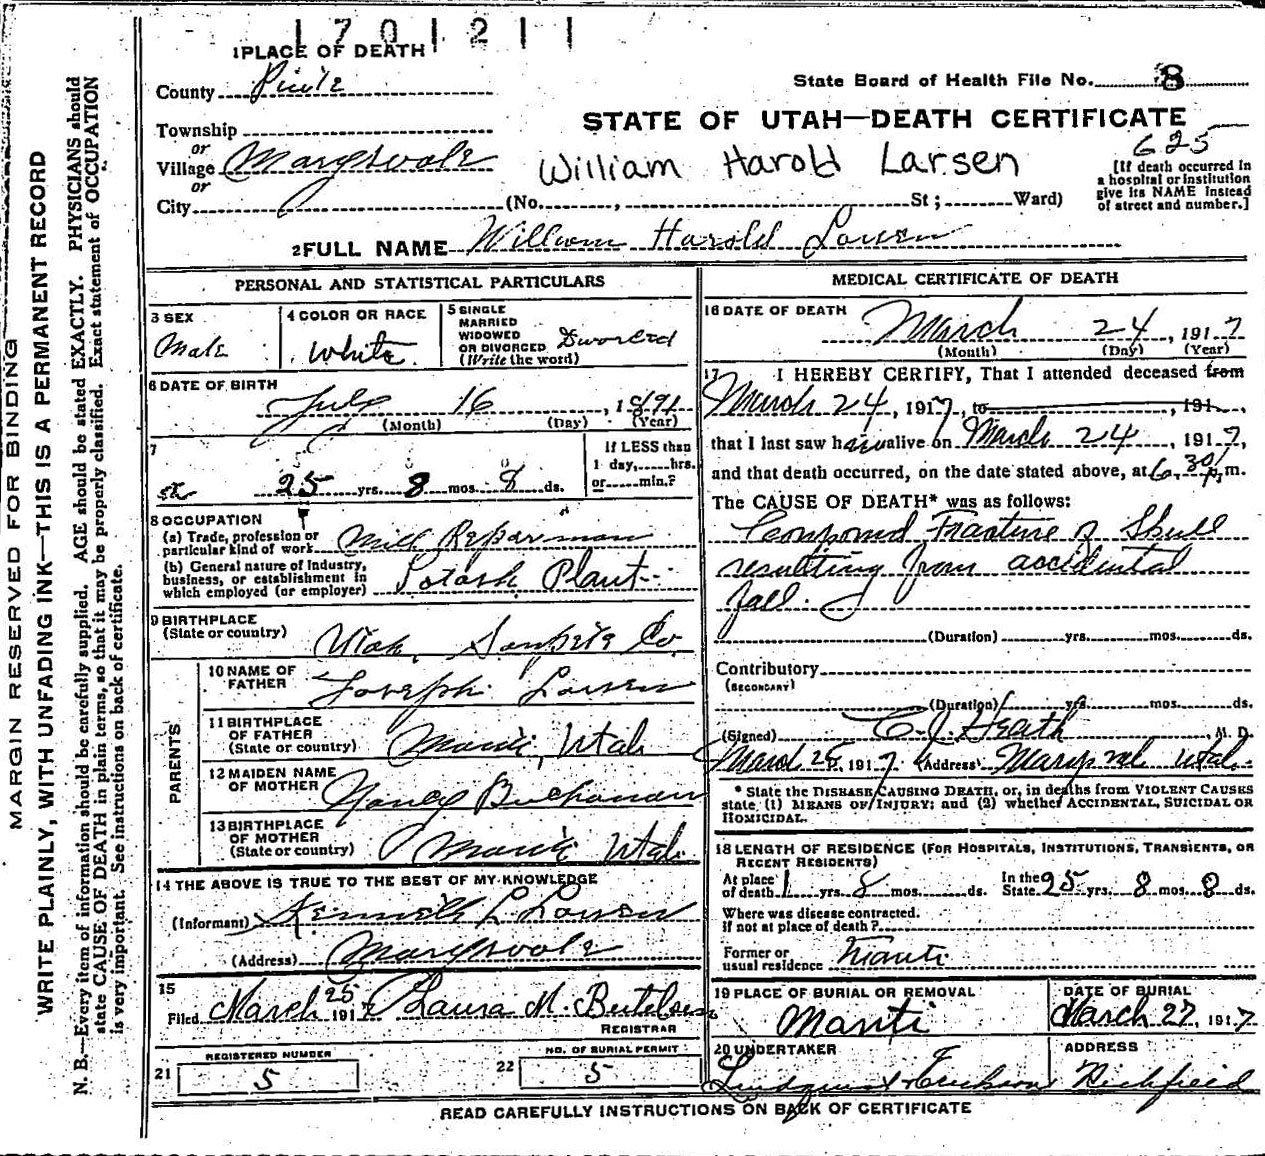 1701211
1 PLACE OF DEATH
State Board of Health File No. 8
County Piute
STATE OF UTAH—DEATH CERTIFICATE
625
Township
or
Village Marysvale
William Harold Larsen
[If death occurred in
a hospital or institution
give its NAME instead
of street and number.]
or
City (No. , St ; Ward)
2 FULL NAME William Harold Larsen
PERSONAL AND STATISTICAL PARTICULARS
3 SEX
Male
4 COLOR OR RACE
White
5 SINGLE
MARRIED
WIDOWED
OR DIVORCED Divorced
(Write the word)
6 DATE OF BIRTH
July 16, 1891
(Month) (Day) (Year)
7
25 yrs. 8 mos. 8 ds.
If LESS than
1 day, hrs.
or min.?
8 OCCUPATION
(a) Trade, profession or
particular kind of work Mill Repairman
(b) General nature of Industry,
business, or establishment in
which employed (or employer) Potash Plant
9 BIRTHPLACE
(State or country) Utah, Sanpete Co.
PARENTS
10 NAME OF
FATHER Joseph Larsen
11 BIRTHPLACE
OF FATHER
(State or country) Manti, Utah
12 MAIDEN NAME
OF MOTHER Nancy Buchanan
13 BIRTHPLACE
OF MOTHER
(State or country) Manti Utah
14 THE ABOVE IS TRUE TO THE BEST OF MY KNOWLEDGE
(Informant) Kenneth L. Larsen
(Address) Marysvale
15
Filed March 25 1917 Laura M. Bertelsen
REGISTRAR
REGISTERED NUMBER
21 5
NO. OF BURIAL PERMIT
22 5
MEDICAL CERTIFICATE OF DEATH
16 DATE OF DEATH
March 24, 1917
(Month) (Day) (Year)
17 I HEREBY CERTIFY, That I attended deceased from
March 24, 1917, to , 191 ,
that I last saw him alive on March 24, 1917,
and that death occurred, on the date stated above, at 6.30 p.m.
The CAUSE OF DEATH* was as follows:
Compound Fracture of Skull
resulting from accidental
fall.
(Duration) yrs. mos. ds.
Contributory
(SECONDARY)
(Duration) yrs. mos. ds.
(Signed) C. J. Heath, M. D.
March 25, 1917 (Address) Marysval Utah.
* State the DISEASE CAUSING DEATH, or, in deaths from VIOLENT CAUSES
state (1) MEANS OF INJURY; and (2) whether ACCIDENTAL, SUICIDAL OR
HOMICIDAL.
18 LENGTH OF RESIDENCE (FOR HOSPITALS, INSTITUTIONS, TRANSIENTS, OR
RECENT RESIDENTS)
At place In the
of death 1 yrs. 8 mos. ds. State 25 yrs. 8 mos. 8 ds.
Where was disease contracted.
if not at place of death?
Former or
usual residence Manti
19 PLACE OF BURIAL OR REMOVAL
Manti
DATE OF BURIAL
March 27, 1917
20 UNDERTAKER
Erickson
ADDRESS
Richfield
READ CAREFULLY INSTRUCTIONS ON BACK OF CERTIFICATE
MARGIN RESERVED FOR BINDING
WRITE PLAINLY, WITH UNFADING INK—THIS IS A PERMANENT RECORD
N. B.—Every item of information should be carefully supplied. AGE should be stated EXACTLY. PHYSICIANS should
state CAUSE OF DEATH in plain terms, so that it may be properly classified. Exact statement of OCCUPATION
is very important. See instructions on back of certificate.